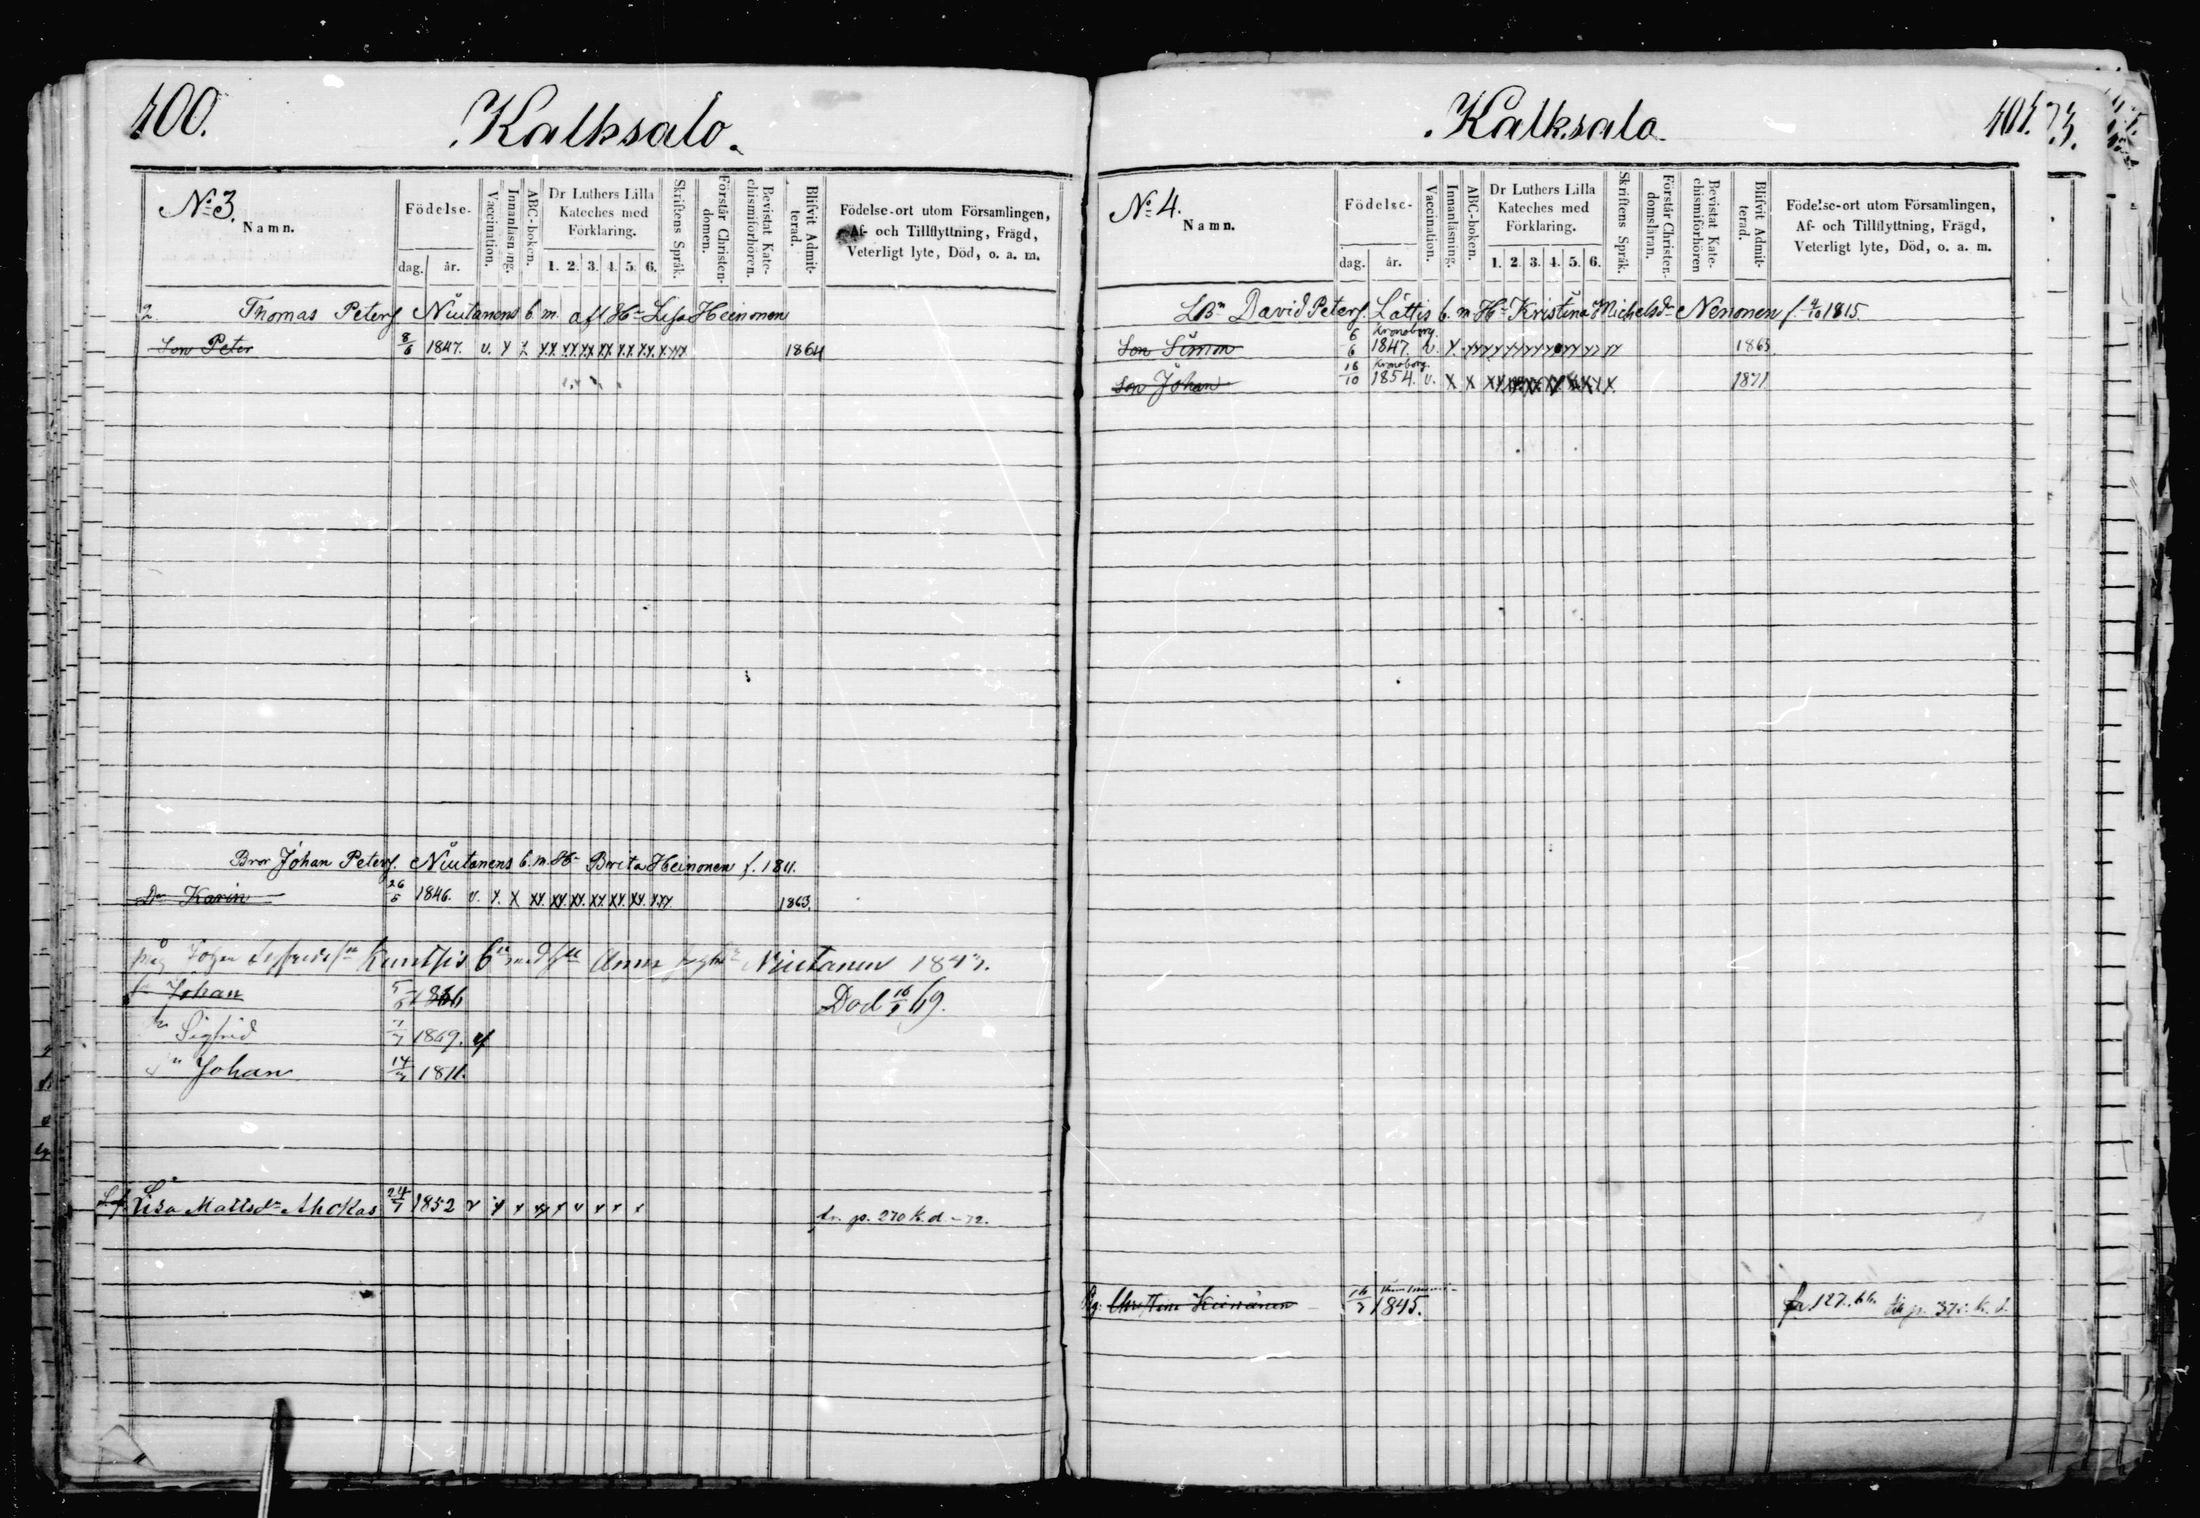 400.
Kalksalo.
No 3.
Namn.
Födelse-
dag.
år.
Vaccination.
Innanläsning.
ABC-boken.
Dr Luthers Lilla
Kateches med
Förklaring.
1. 2. 3. 4. 5. 6.
Skriftens Språk.
Förstår Christen-
domen.
Bevistat Kate-
chismiförhoren.
Blifvit Admit-
terad.
Födelse-ort utom Församlingen,
Af- och Tillflyttning, Frägd,
Veterligt lyte, Död, o. a. m.
2. Thomas Peterss Niutanens b. m. afl. Hu Lisa Heinonen
Son Peter 8/6 1847. v. x x xx xx xx xx xx xx xxx 1864
Bror Johan Peterss. Niutanens b. m. Hu Brita Heinonen f. 1811.
Dr Karin 26/5 1846. v. x. x xx. xx. xx. xx. xx. xx. xxx 1863.
Anna Niutanen 1843.
Johan 1866 Död 69.
Sigfrid 1869.
Johan 14
Lisa Mattsdr Ahokas 24/7 1852 tr. p. 270 k. d. -72.
Kalksalo
401.
No 4.
Namn.
Födelse-
dag.
år.
Vaccination.
Innanläsning.
ABC-boken.
Dr Luthers Lilla
Kateches med
Förklaring.
1. 2. 3. 4. 5. 6.
Skriftens Språk.
Förstår Christen-
domsläran.
Bevistat Kate-
chismiförhören
Blifvit Admit-
terad.
Födelse-ort utom Församlingen,
Af- och Tillflyttning, Frägd,
Veterligt lyte, Död, o. a. m.
David Peterss. Lättis b. m. Hu Kristina Michelsdr Nenonen f. 4/10 1815.
Kronoborg.
Son Simon 6/6 1847. v. x. 1865
Kronoborg.
Son Johan 16/10 1854. v. x x 1871
Pig. Christina 16/7 1845. fr. 127. p. k. d.